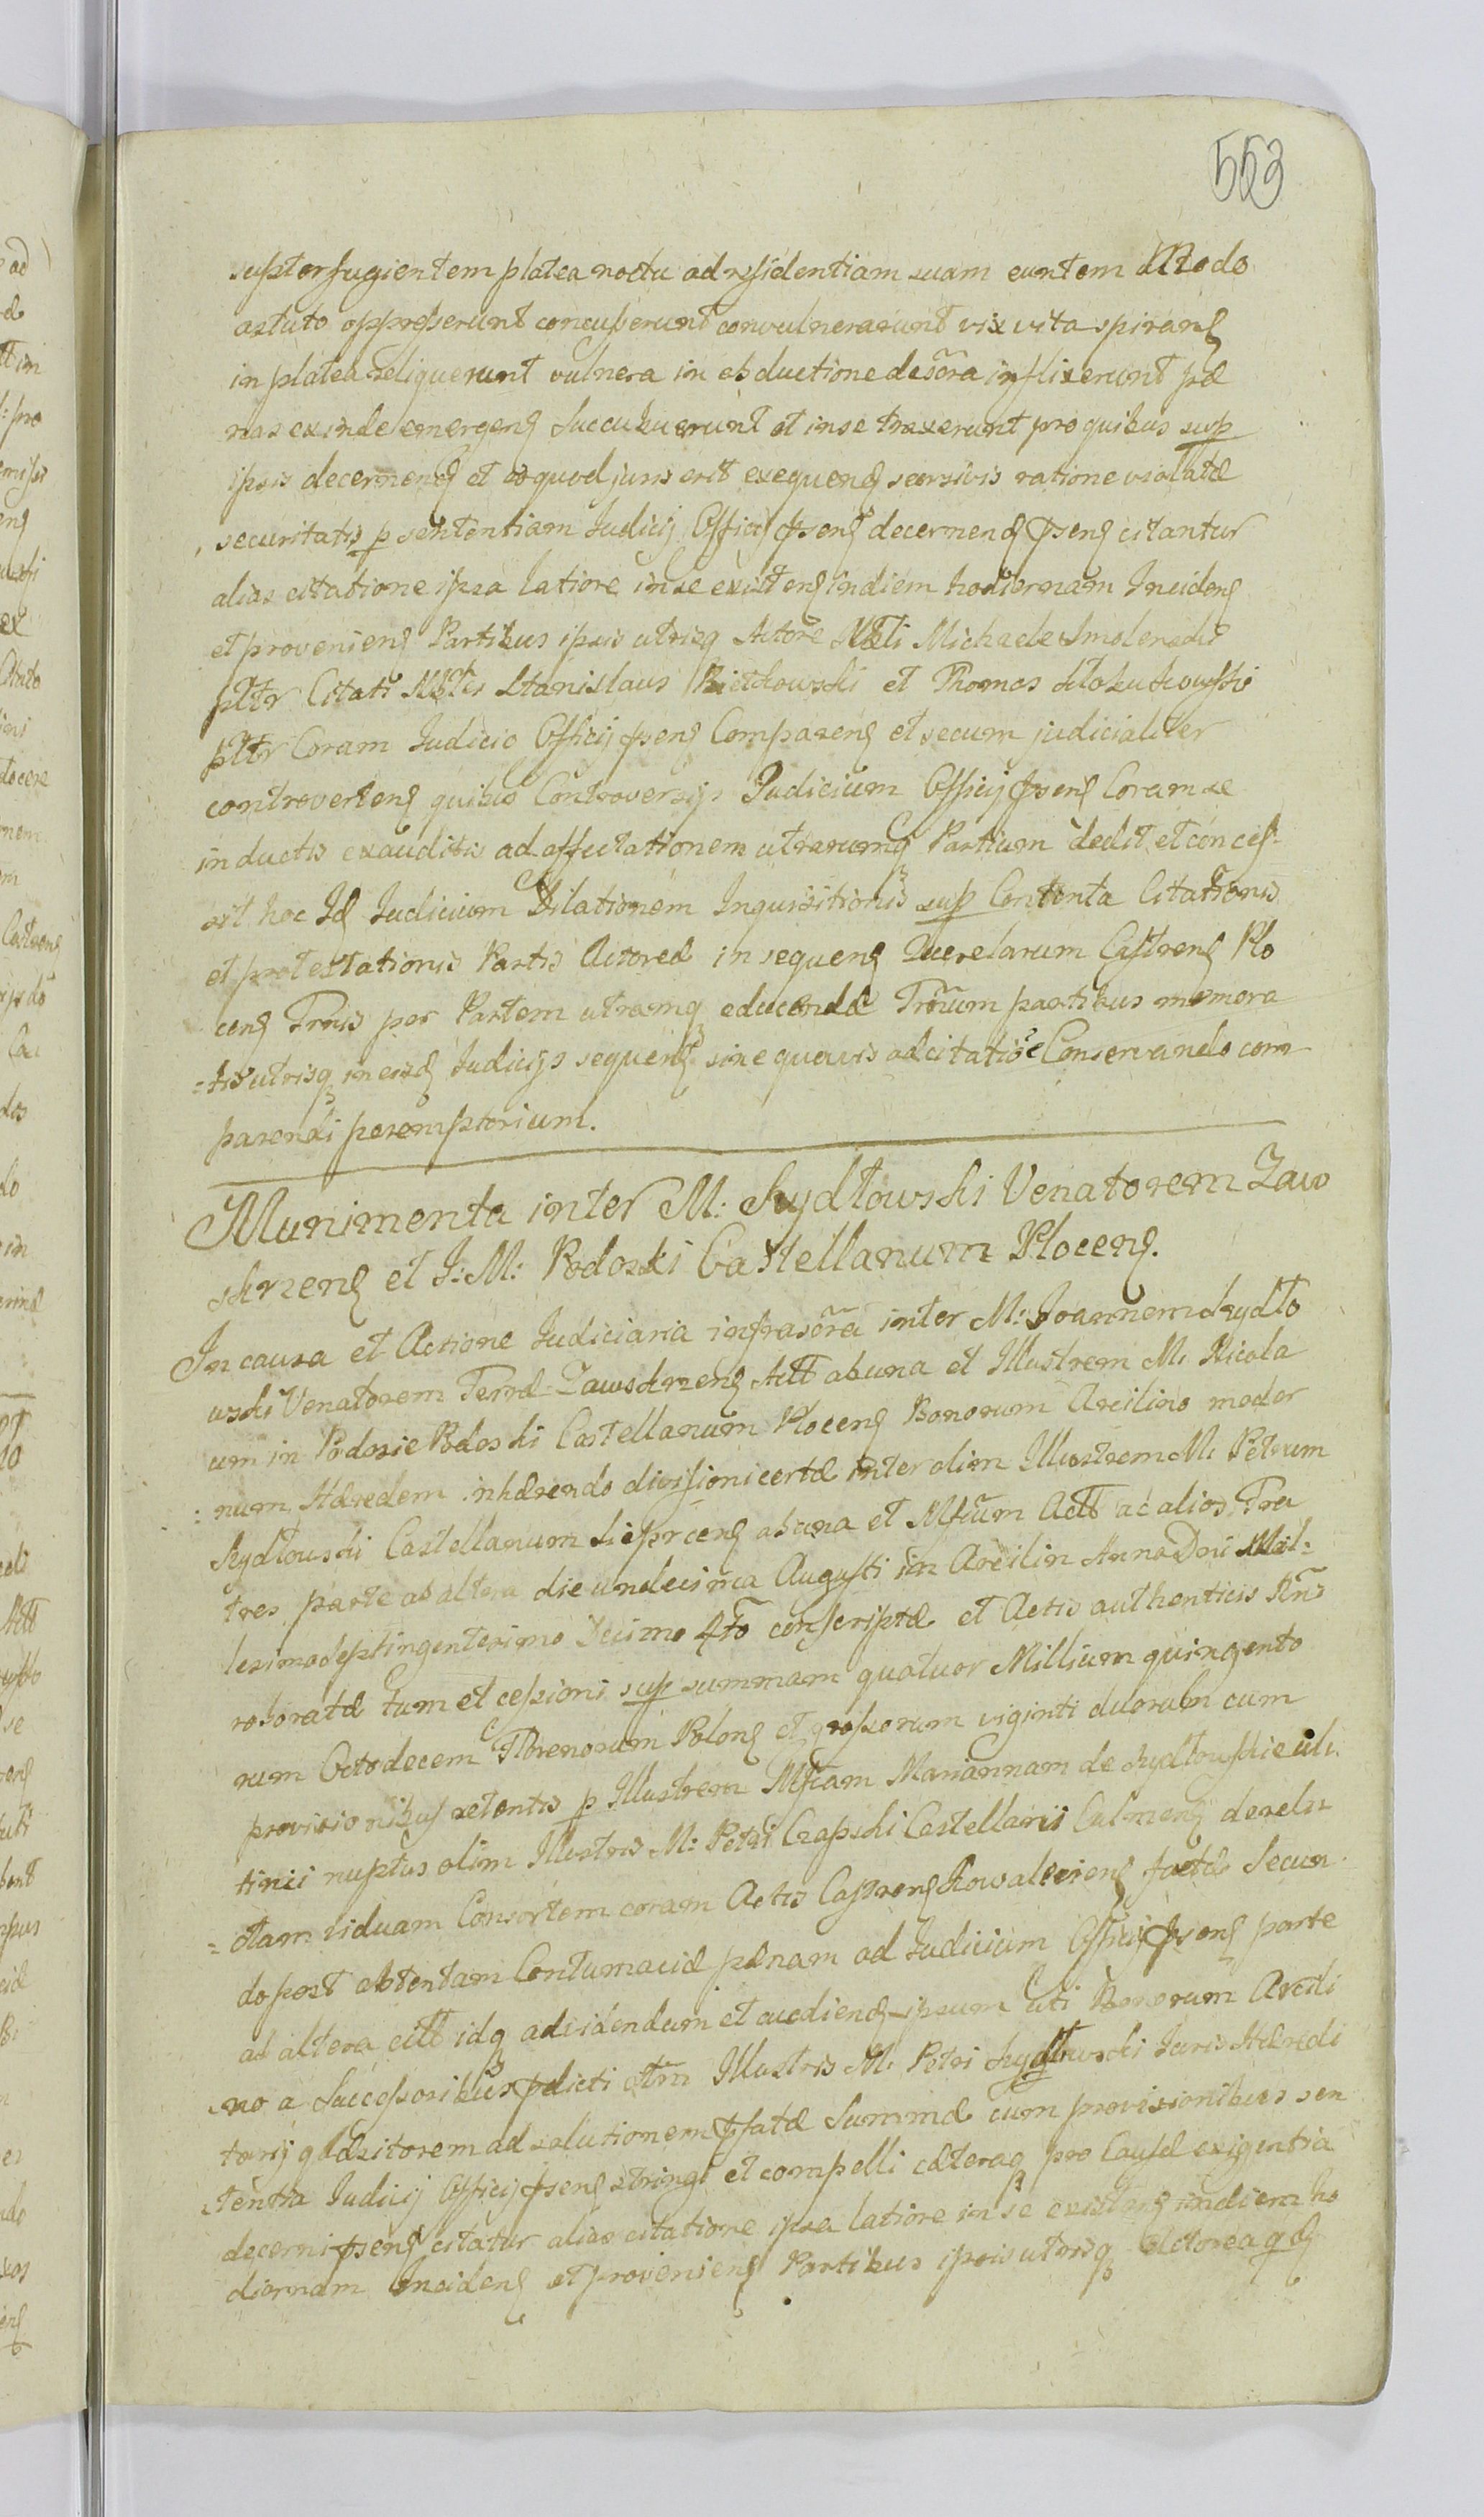 553
supterfugientem platea noctu ad residentiam suam euntem Modo
astuto oppresserunt concusserunt convulnerarunt vix vita spiran
in platea reliquerunt vulnera in obductione descra inflixerunt pæ
nas exinde emergen succubuerunt et in se traxerunt pro quibus sup
ipsis decernen et eo quod juris erit exequen seorsivis ratione violatæ
securitatis p sententiam Judicij Officij psen decernen psen citantur
alias citatione ipsa latiore in se existen in diem hodiernam Inciden
et provenien Partibus ipsis utrisq Actore Nbli Michaele Smolenski
pltr Citati Nbles Stanislaus Bietkowski et Thomas
pltr Coram Judicio Officij psen Comparen et secum judicialiter
controverten quibus Controversijs Judicium Officij psen Coram se
inductis exauditis ad affectationem utrarumq Partium dedit et conces
sit hoc Id Judicium Dilationem Inquisitionis sup Contenta Citationis
et protestationis Partis Actoreæ in sequen Querelarum Castren Plo
cen Trnis per Partem utramq educendæ Trnum partibus memora
tis utrisq in eisd Judicijs sequen sine quavis adcitatioe Conservando com
parendi peremptorium.
Munimenta inter M: Szydłowski Venatorem Zaw
skrzen et J: M: Podoski Castellanum Plocen.
In causa et Actione Judiciaria infrascra inter M: Joannem Szydło
wski Venatorem Terræ Zawskrzen Actt ab una et Illustrem M. Nicola
um in Podosie Podoski Castellanum Plocen Bonorum Arcilino moder
num Hæredem inhærendo divisioni certæ inter olim Illustrem M. Petrum
Szydłowski Castellanum Sieprcen ab una et Mfcum Actt ac alios Fra
tres parte ab altera die undecima Augusti in Arcilin Anno Dni Mil
lesimo septingentesimo Decimo 4to conscriptæ et Actis authenticis
roboratæ tum et cessioni sup summam quatuor Millium quingento
rum Octodecem Florenorum Polon et grossorum viginti duorum cum
provisionibus retentis p Illustrem Mfcam Mariannam de Szydłowskie ulti
timi nuptus olim Illustris M: Petri Czapski Castellani Culmen derelic
ctam viduam Consortem coram Actis Castren Kowalevien factæ Secun
do post obtentam Contumaciæ pænam ad Judicium Officij psen parte
ab altera citt idq ad videndum et audiend ipsum uti Bonorum Arcili
no a Successoribus pdicti otm Illustris M. Petri Szydłowski Juris Hæredi
tarij qdsitorem ad solutionem pfatæ Summæ cum provisionibus sen
tentia Judicij Officij psen stringi et compelli cæteraq pro Causæ exigentia
decerni psen citatur alias citatione ipsa latiore in se existen in diem ho
diernam Inciden et provenien Partibus ipsis utrisq Actorea qd